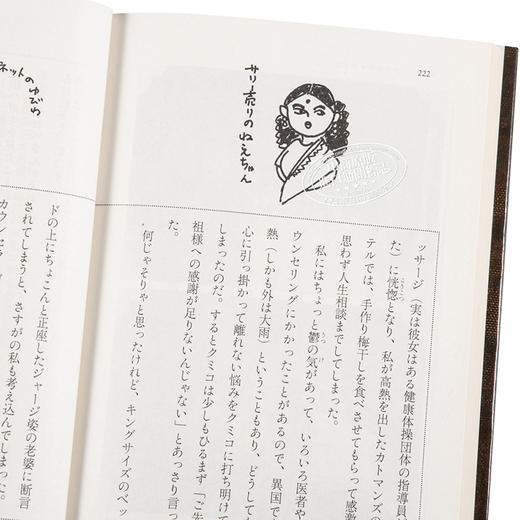 222
サリー売りのねえちゃん
ッサージ（実は彼女はある健康体操団体の指導員
た）に恍惚となり、私が高熱を出したカトマンズ
テルでは、手作り梅干しを食べさせてもらって感激
思わず人生相談までしてしまった。
私にはちょっと鬱の気があって、いろいろ医者や
ウンセリングにかかったことがあるので、異国で
熱（しかも外は大雨）ということもあり、どうして
心に引っ掛かって離れない悩みをクミコに打ち明けて
しまったのだ。するとクミコは少しもひるまず「ご先
祖様への感謝が足りないんじゃない」とあっさり言っ
た。
何じゃそりゃと思ったけれど、キングサイズのベッ
ドの上にちょこんと正座したジャージ姿の老婆に断言
されてしまうと、さすがの私も考え込んでしまった。
カウンセラ
ネットのゆびわ